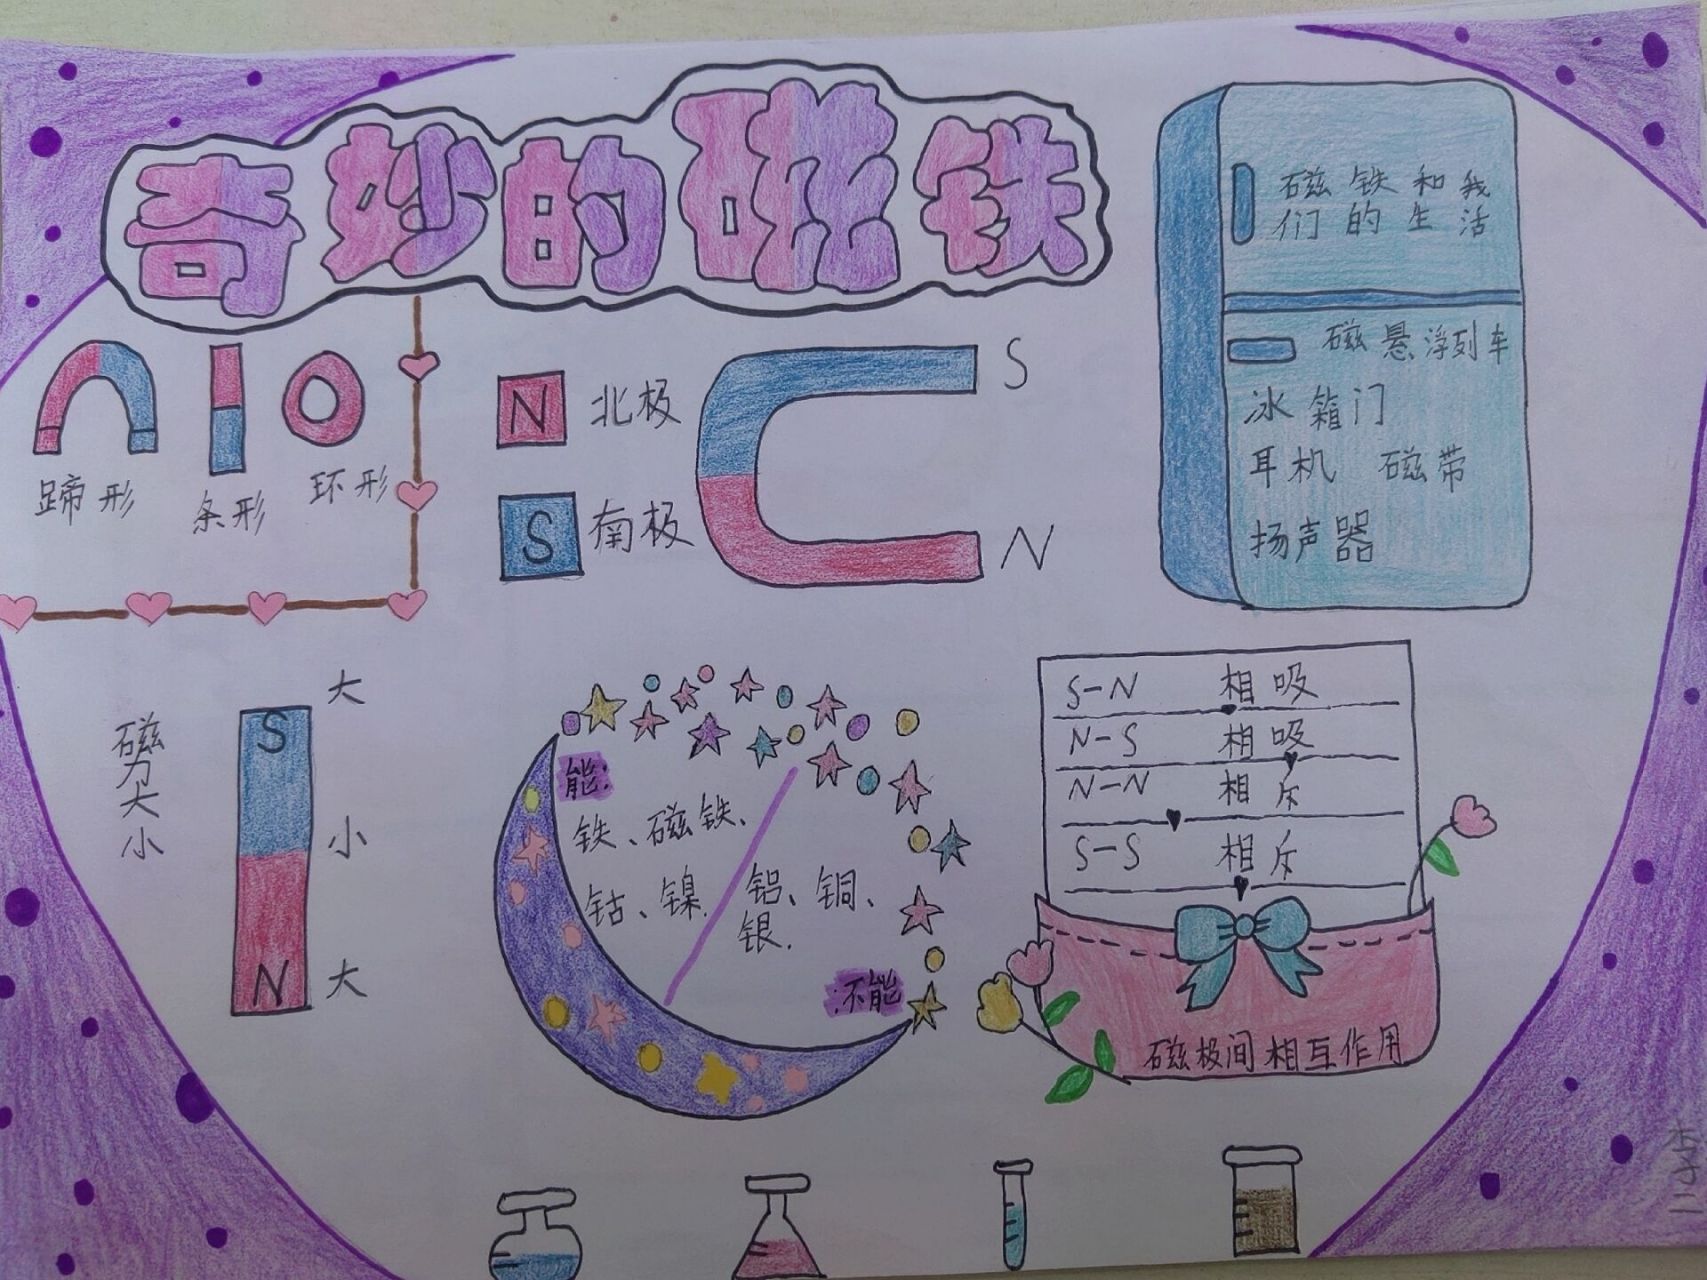 奇妙的磁铁
蹄形
条形
环形
N 北极
S 南极
S
N
磁铁和我
们的生活
磁悬浮列车
冰箱门
耳机 磁带
扬声器
磁力大小
S 大
小
N 大
能:
铁、磁铁、
钴、镍.
铝、铜、
银.
:不能
S-N 相吸
N-S 相吸
N-N 相斥
S-S 相斥
磁极间相互作用